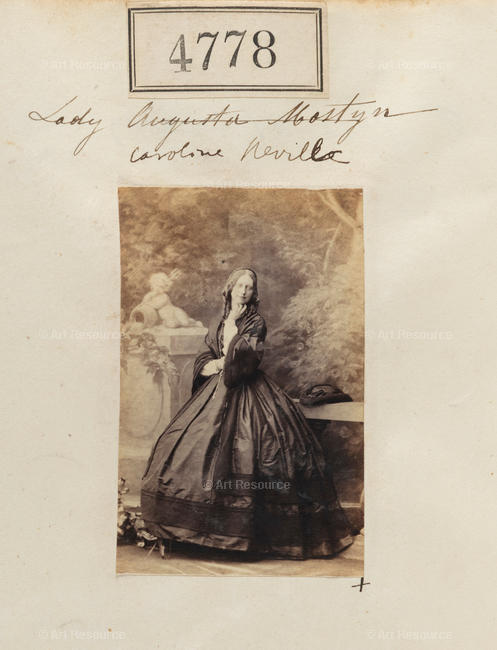 4778
Lady Augusta Mostyn
Caroline Neville
© Art Resource
© Art Resource
© Art Resource
© Art Resource
© Art Resource
© Art Resource
© Art Resource
© Art Resource
+